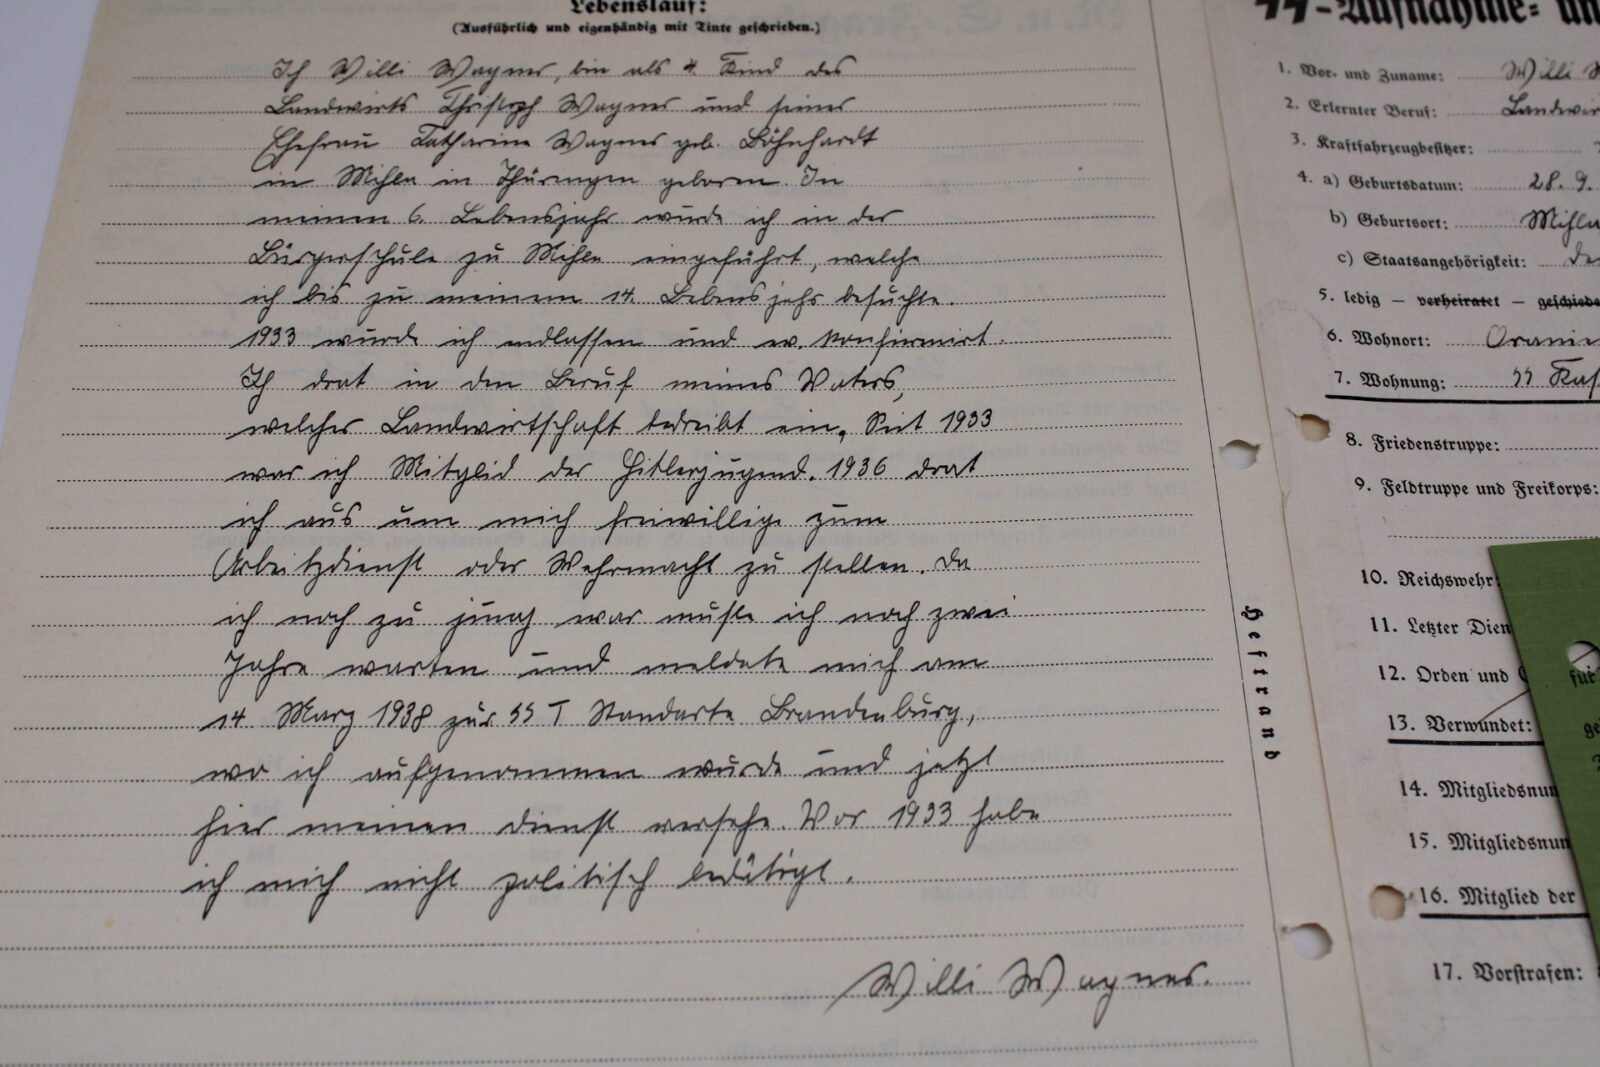 Lebenslauf:
(Ausführlich und eigenhändig mit Tinte geschrieben.)
Ich Willi Wagner, bin als 4. Kind des
Landwirts Christoph Wagner und seiner
Ehefrau Katharina Wagner geb. Böhnhardt
in Mihla in Thüringen geboren. In
meinen 6. Lebensjahr wurde ich in der
Bürgerschule zu Mihla eingeführt, welche
ich bis zu meinem 14. Lebensjahr besuchte.
1933 wurde ich endlassen und ev. konfirmirt.
Ich drat in den Beruf meines Vaters,
welcher Landwirtschaft bedreibt ein. Seit 1933
war ich Mitglid der Hitlerjugend. 1936 drat
ich aus um mich freiwillige zum
Arbeitzdienst oder Wehrmacht zu stellen. Da
ich noch zu jung war muste ich noch zwei
Jahre warten und meldete mich am
14 Marz 1938 zur SS T Standarte Brandenburg,
wo ich aufgenommen wurde und jetzt
hier meinen dienst versehe. Vor 1933 habe
ich mich nicht politisch bedätigt.
Willi Wagner.
Heftrand
SS-Aufnahme- un
1. Vor- und Zuname: Willi W
2. Erlernter Beruf: Landwir
3. Kraftfahrzeugbesitzer:
4. a) Geburtsdatum: 28. 9.
b) Geburtsort: Mihla
c) Staatsangehörigkeit: De
5. ledig – verheiratet – geschiede
6. Wohnort: Oranie
7. Wohnung: SS Kas
8. Friedenstruppe:
9. Feldtruppe und Freikorps:
10. Reichswehr:
11. Letzter Dien
12. Orden und
13. Verwundet:
14. Mitgliedsnum
15. Mitgliedsnum
16. Mitglied der
17. Vorstrafen:
für
ge